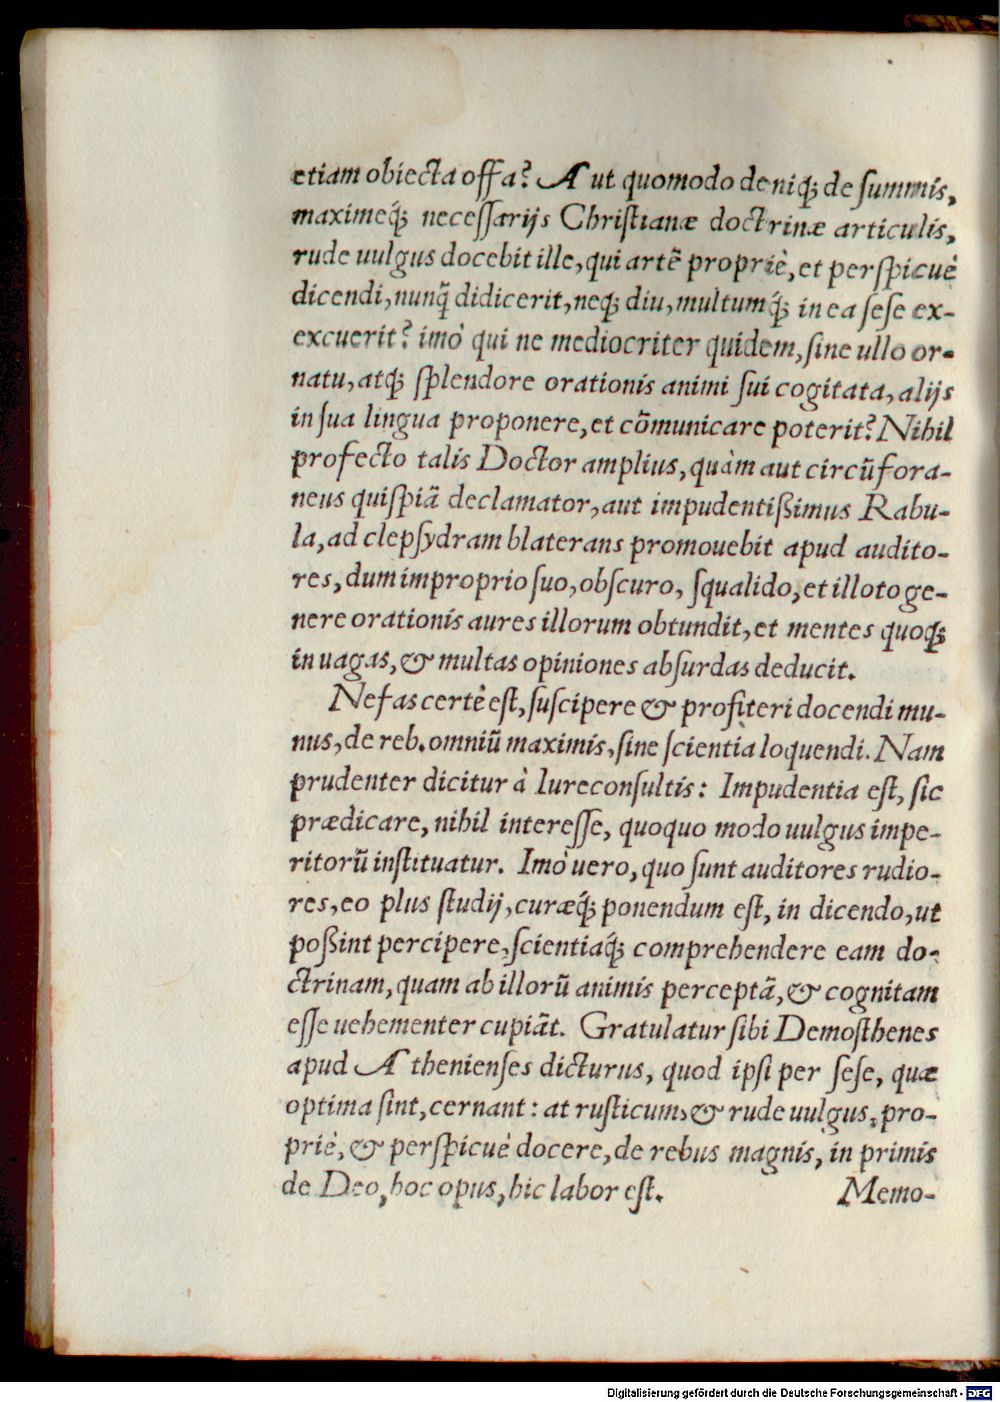 etiam obiecta offa? Aut quomodo deniq; de ſummis,
maximeq́; neceſſarijs Chriſtianæ doctrinæ articulis,
rude uulgus docebit ille, qui artẽ propriè, et perſpicuè
dicendi, nunq̃ didicerit, neq; diu, multumq́; in ea ſeſe ex-
excuerit? imò qui ne mediocriter quidem, ſine ullo or-
natu, atq; ſplendore orationis animi ſui cogitata, alijs
in ſua lingua proponere, et cõmunicare poterit? Nihil
profecto talis Doctor amplius, quàm aut circũfora-
neus quiſpiã declamator, aut impudentißimus Rabu-
la, ad clepſydram blaterans promouebit apud audito-
res, dum improprio ſuo, obſcuro, ſqualido, et illoto ge-
nere orationis aures illorum obtundit, et mentes quoq;
in uagas, & multas opiniones abſurdas deducit.
Nefas certè eſt, ſuſcipere & profiteri docendi mu-
nus, de reb. omniũ maximis, ſine ſcientia loquendi. Nam
prudenter dicitur à Iureconſultis: Impudentia eſt, ſic
prædicare, nihil intereſſe, quoquo modo uulgus impe-
ritorũ inſtituatur. Imò uero, quo ſunt auditores rudio-
res, eo plus ſtudij, curæq́; ponendum eſt, in dicendo, ut
poßint percipere, ſcientiaq́; comprehendere eam do-
ctrinam, quam ab illorũ animis perceptã, & cognitam
eſſe uehementer cupiãt. Gratulatur ſibi Demoſthenes
apud Athenienſes dicturus, quod ipſi per ſeſe, quæ
optima ſint, cernant: at ruſticum, & rude uulgus, pro-
priè, & perſpicuè docere, de rebus magnis, in primis
de Deo, hoc opus, hic labor eſt. Memo-
Digitalisierung gefördert durch die Deutsche Forschungsgemeinschaft - DFG